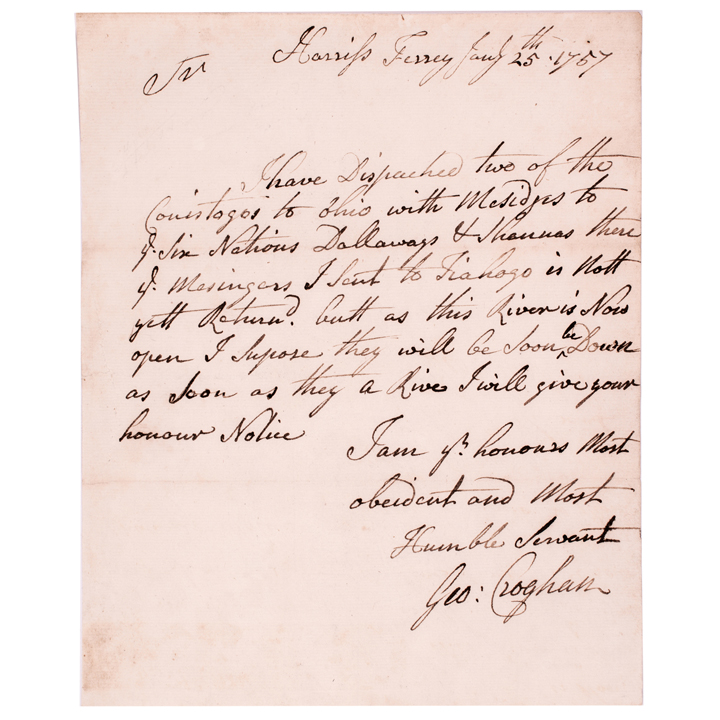 Harriss Ferrey Jany 25th 1757
Sr
I have Dispached two of the
Conistogos to Ohio with Mesidges to
ye Six Nations Dallaways & Shannas there
ye Mesingers I Sent to Tiahogo is Nott
yett Returnd. butt as this River is Now
open I Supose they will be Soon be Down
as Soon as they a Rive I will give your
honour Notice
I am yr honours Most
obeident and Most
Humble Servant
Geo: Croghan